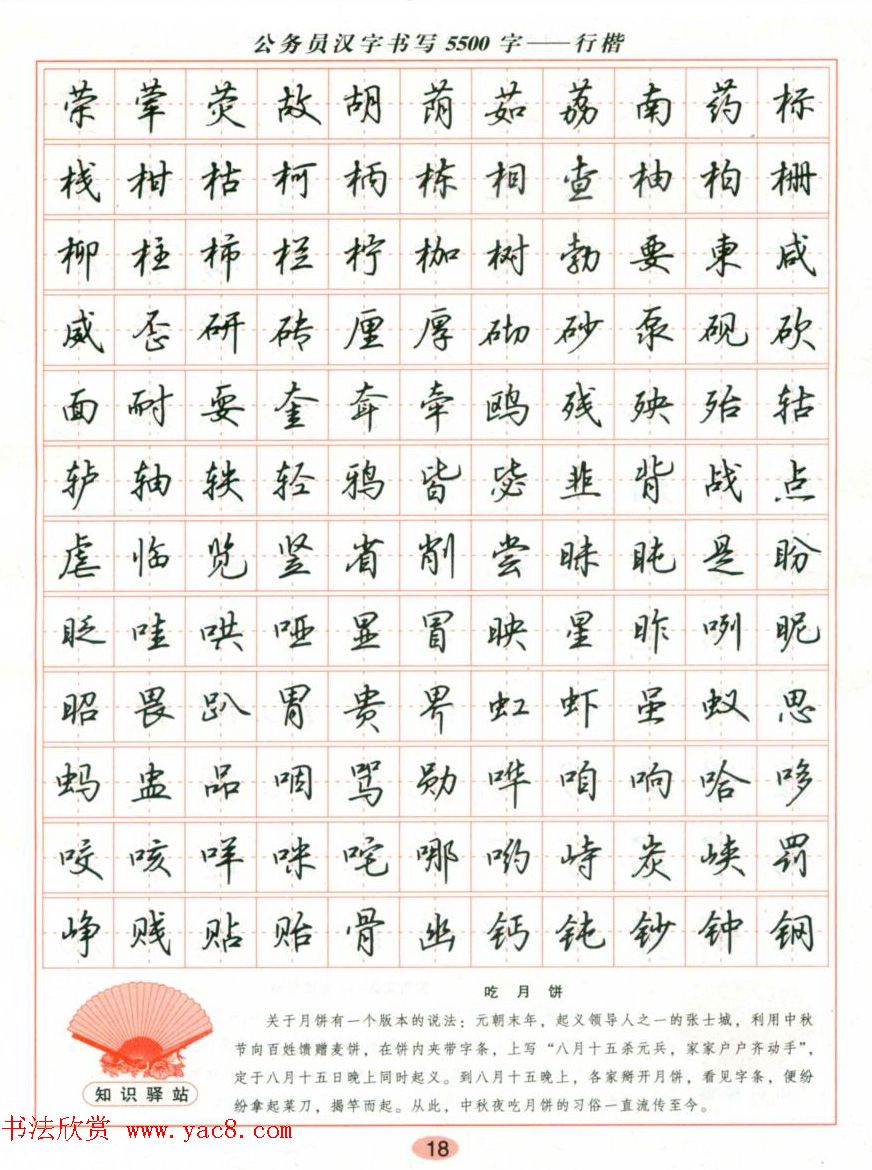 公务员汉字书写5500字——行楷
荣荤荧故胡荫茹荔南药标
栈柑枯柯柄栋相查柚柏栅
柳柱柿栏柠枷树勃要柬咸
威歪研砖厘厚砌砂泵砚砍
面耐耍奎耷牵鸥残殃殆轱
轳轴轶轻鸦皆毖韭背战点
虐临览竖省削尝昧盹是盼
眨哇哄哑显冒映星昨咧昵
昭畏趴胃贵界虹虾虽蚁思
蚂盅品咽骂勋哗咱响哈哆
咬咳咩咪咤哪哟峙炭峡罚
峥贱贴贻骨幽钙钝钞钟钢
吃月饼
关于月饼有一个版本的说法：元朝末年，起义领导人之一的张士城，利用中秋
节向百姓馈赠麦饼，在饼内夹带字条，上写“八月十五杀元兵，家家户户齐动手”，
定于八月十五日晚上同时起义。到八月十五晚上，各家掰开月饼，看见字条，便纷
纷拿起菜刀，揭竿而起。从此，中秋夜吃月饼的习俗一直流传至今。
知识驿站
书法欣赏 www.yac8.com
18